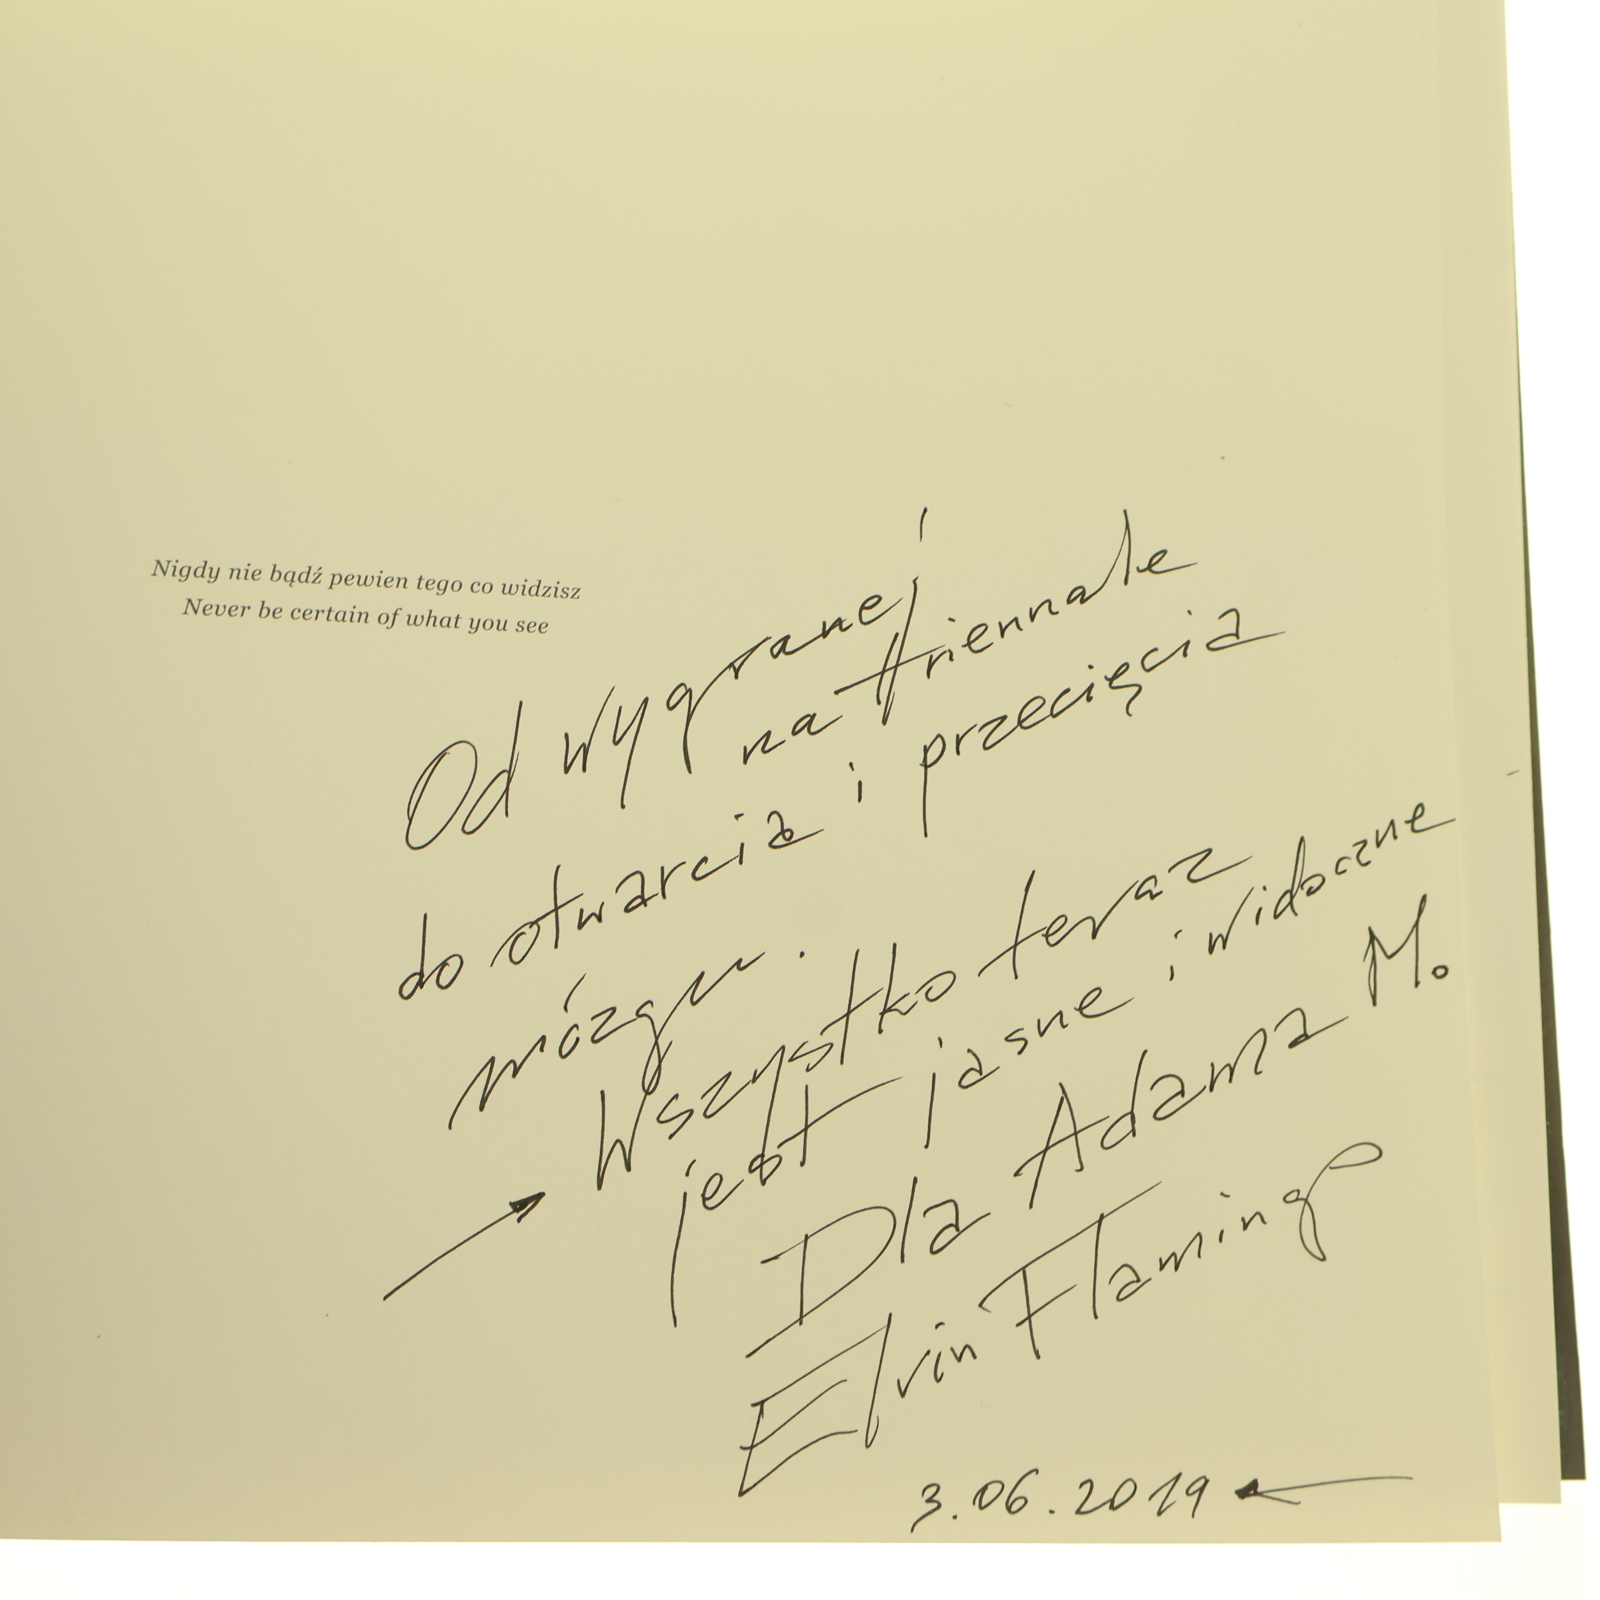 Nigdy nie bądź pewien tego co widzisz
Never be certain of what you see
Od wygranej
na triennale
do otwarcia i przecięcia
mózgu.
Wszystko teraz
jest jasne i widoczne
Dla Adama M.
Elvin Flamingo
3.06.2019